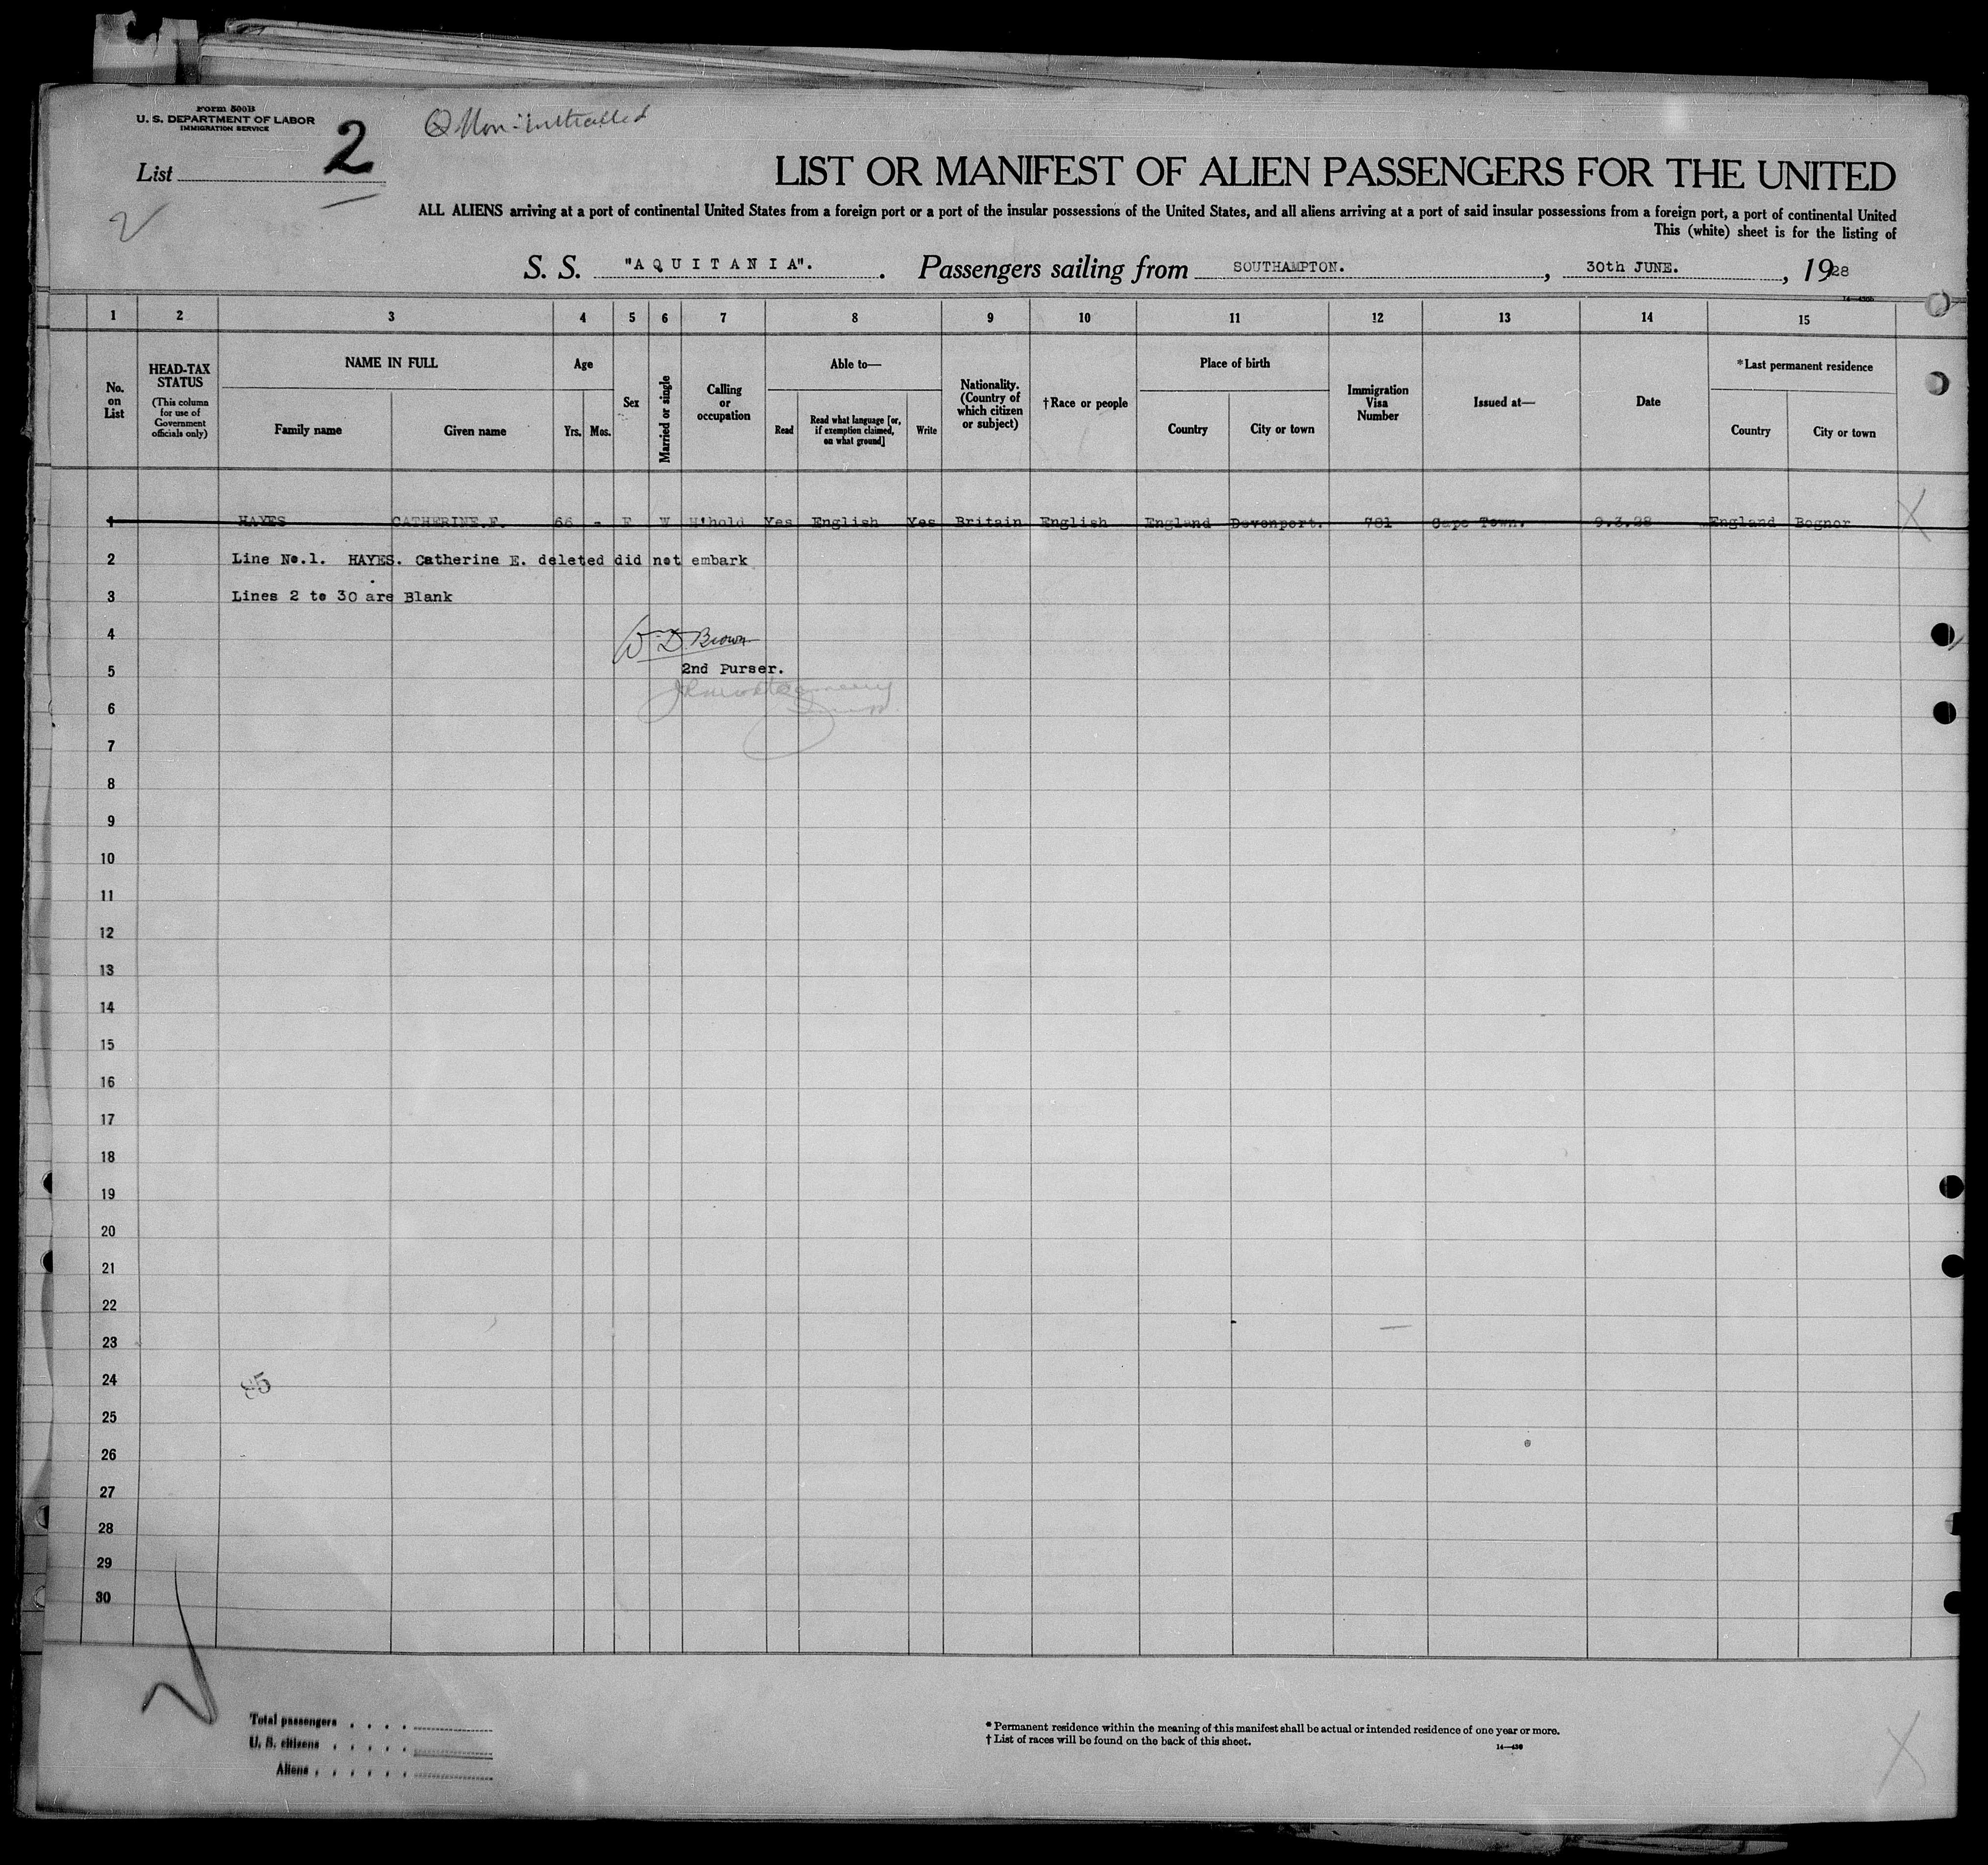 Form 500B
U. S. DEPARTMENT OF LABOR
IMMIGRATION SERVICE
List 2
LIST OR MANIFEST OF ALIEN PASSENGERS FOR THE UNITED
ALL ALIENS arriving at a port of continental United States from a foreign port or a port of the insular possessions of the United States, and all aliens arriving at a port of said insular possessions from a foreign port, a port of continental United
This (white) sheet is for the listing of
S. S. "AQUITANIA". Passengers sailing from SOUTHAMPTON. , 30th JUNE. , 1928
1 2 3 4 5 6 7 8 9 10 11 12 13 14 15
No. on List
HEAD-TAX STATUS (This column for use of Government officials only)
NAME IN FULL
Family name
Given name
Age
Yrs.
Mos.
Sex
Married or single
Calling or occupation
Able to—
Read
Read what language [or, if exemption claimed, on what ground]
Write
Nationality. (Country of which citizen or subject)
†Race or people
Place of birth
Country
City or town
Immigration Visa Number
Issued at—
Date
*Last permanent residence
Country
City or town
1 HAYES CATHERINE.E. 66 - F W H'hold Yes English Yes Britain English England Devonport. 781 Cape Town. 9.3.28 England Bognor
2 Line No.1. HAYES. Catherine E. deleted did not embark
3 Lines 2 to 30 are Blank
4 W D Brown
5 2nd Purser.
6
7
8
9
10
11
12
13
14
15
16
17
18
19
20
21
22
23
24 85
25
26
27
28
29
30
Total passengers
U. S. citizens
Aliens
* Permanent residence within the meaning of this manifest shall be actual or intended residence of one year or more.
† List of races will be found on the back of this sheet.
14—430